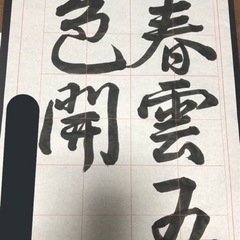 春雲五
色開